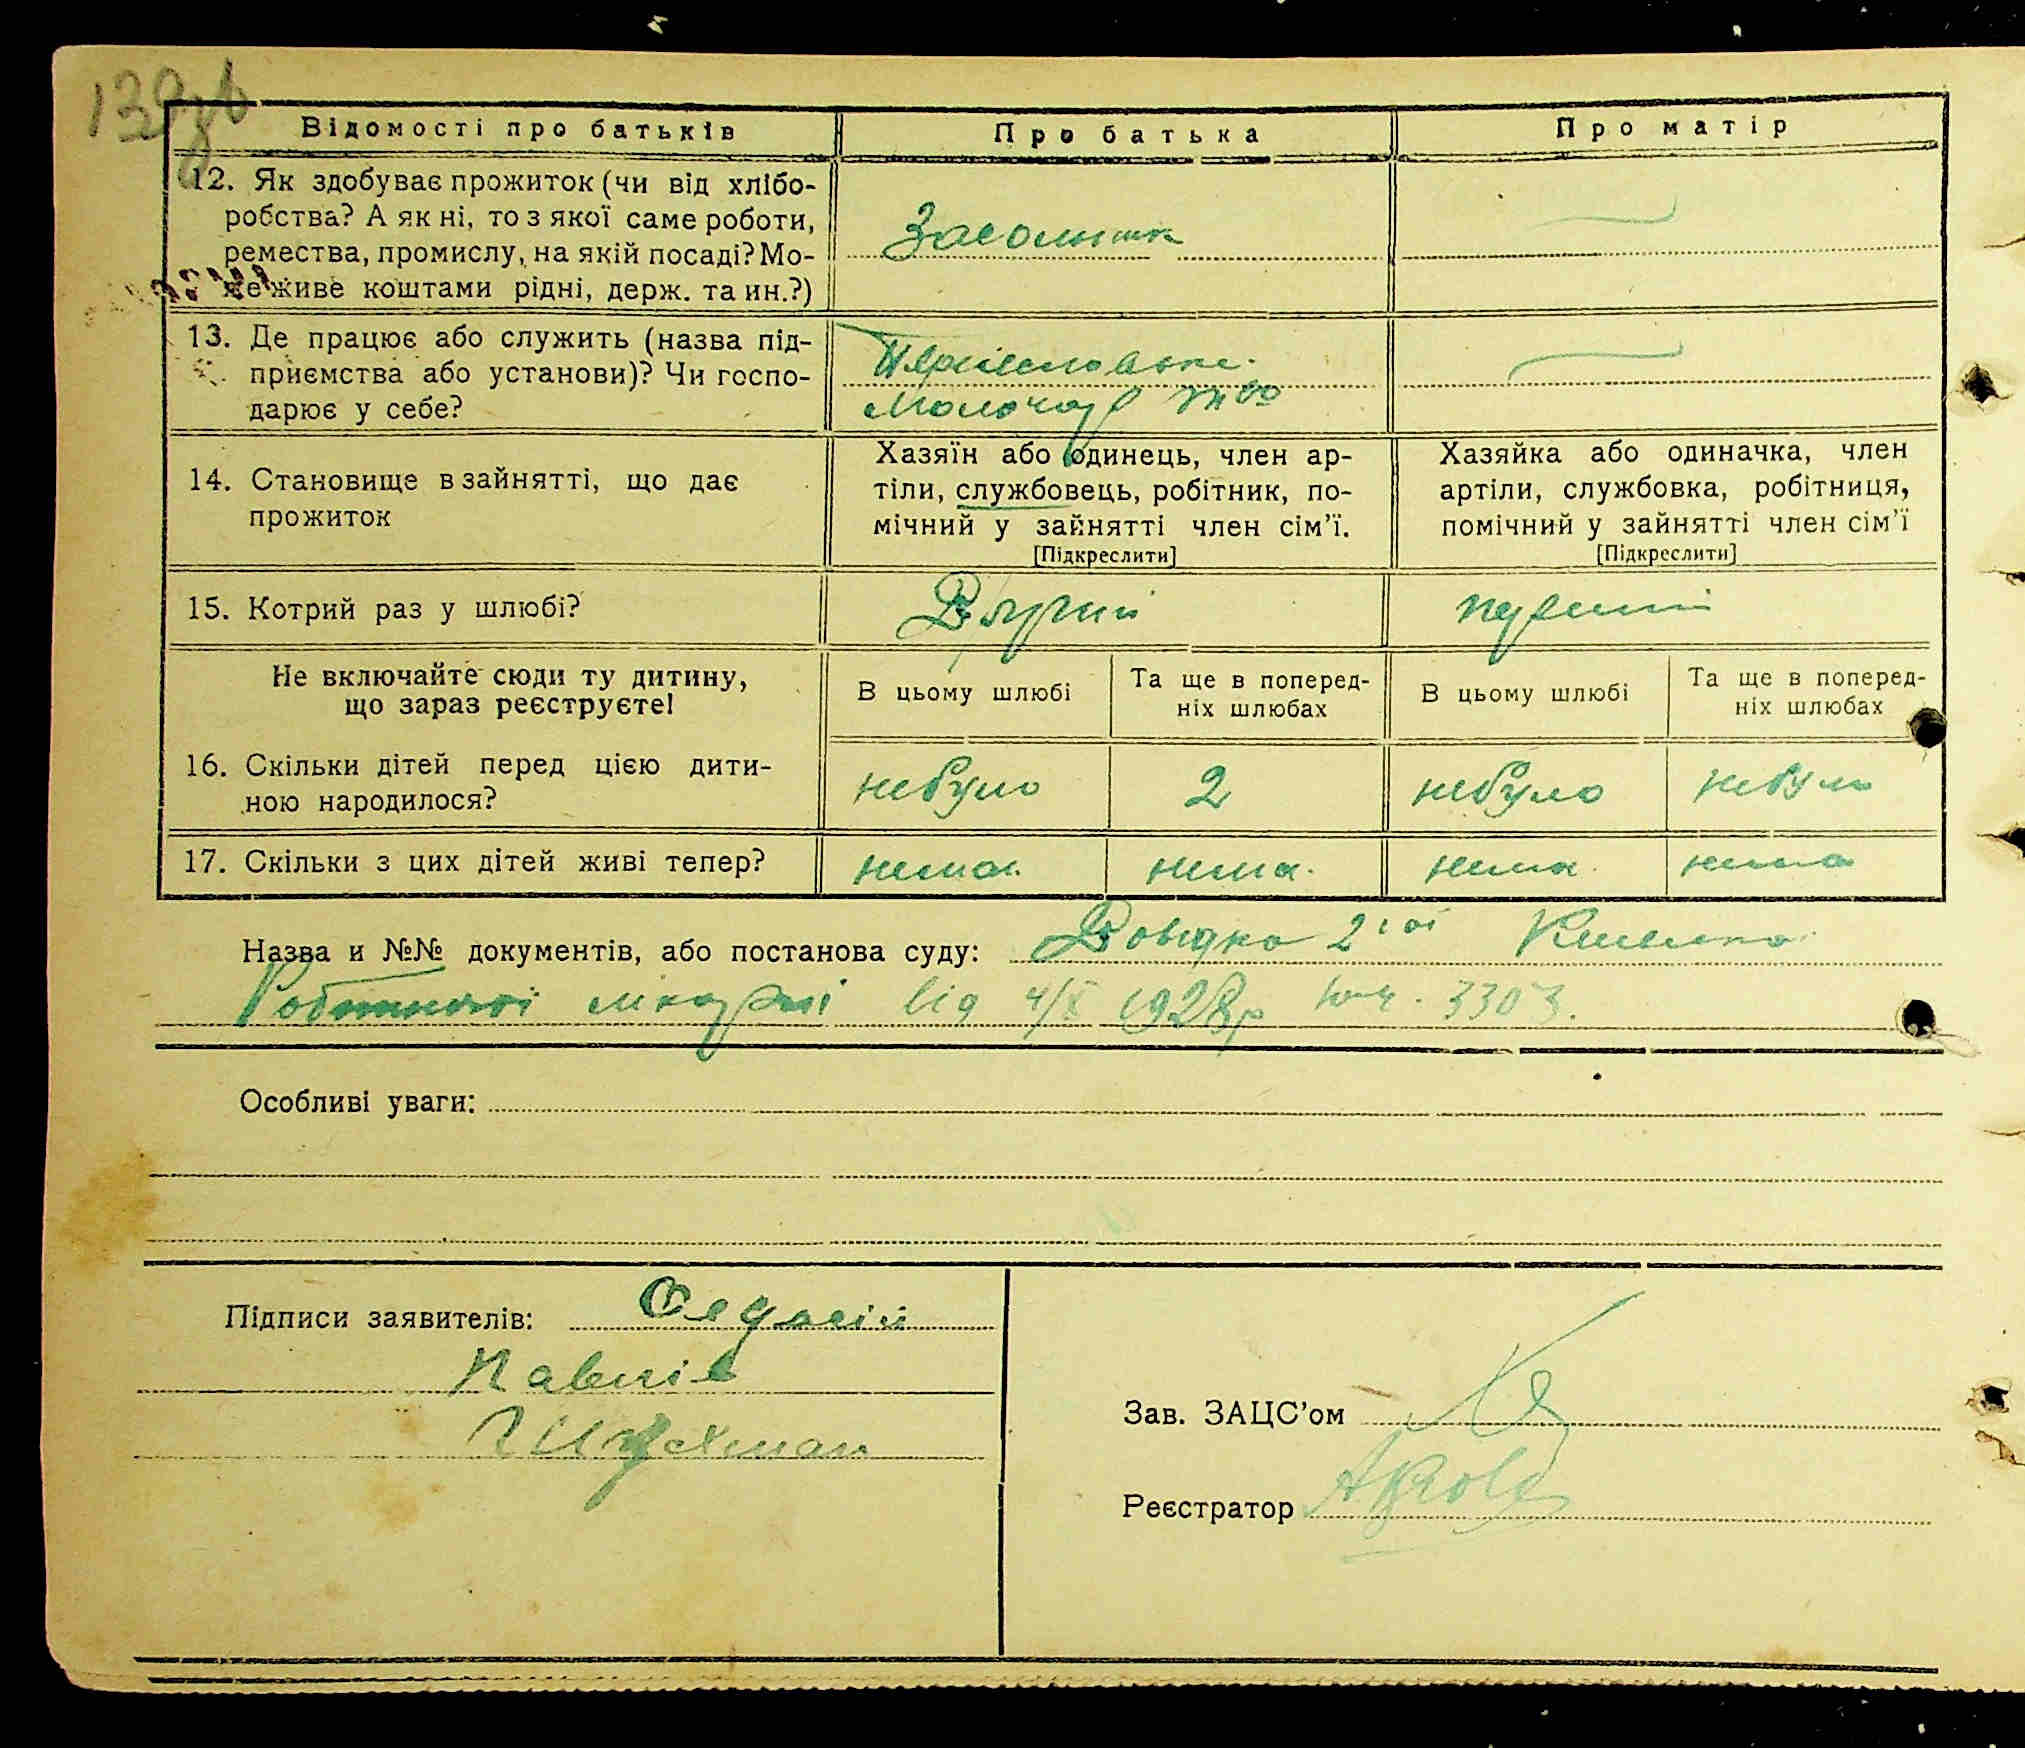 139зв
Відомості про батьків
Про батька
Про матір
12. Як здобуває прожиток (чи від хлібо-
робства? А як ні, то з якої саме роботи,
ремества, промислу, на якій посаді? Мо-
же живе коштами рідні, держ. та ин.?)
13. Де працює або служить (назва під-
приємства або установи)? Чи госпо-
дарює у себе?
Молочар т-во
14. Становище в зайнятті, що дає
прожиток
Хазяїн або одинець, член ар-
тіли, службовець, робітник, по-
мічний у зайнятті член сім'ї.
[Підкреслити]
Хазяйка або одиначка, член
артіли, службовка, робітниця,
помічний у зайнятті член сім'ї
[Підкреслити]
15. Котрий раз у шлюбі?
Другий
перший
Не включайте сюди ту дитину,
що зараз реєструєте!
В цьому шлюбі
Та ще в поперед-
ніх шлюбах
В цьому шлюбі
Та ще в поперед-
ніх шлюбах
16. Скільки дітей перед цією дити-
ною народилося?
небуло
2
небуло
небуло
17. Скільки з цих дітей живі тепер?
нема
нема.
нема.
нема
Назва и №№ документів, або постанова суду: Довідка 2ої
лікарні від 4/X 1928р 3303.
Особливі уваги:
Підписи заявителів:
Зав. ЗАЦС'ом
Реєстратор